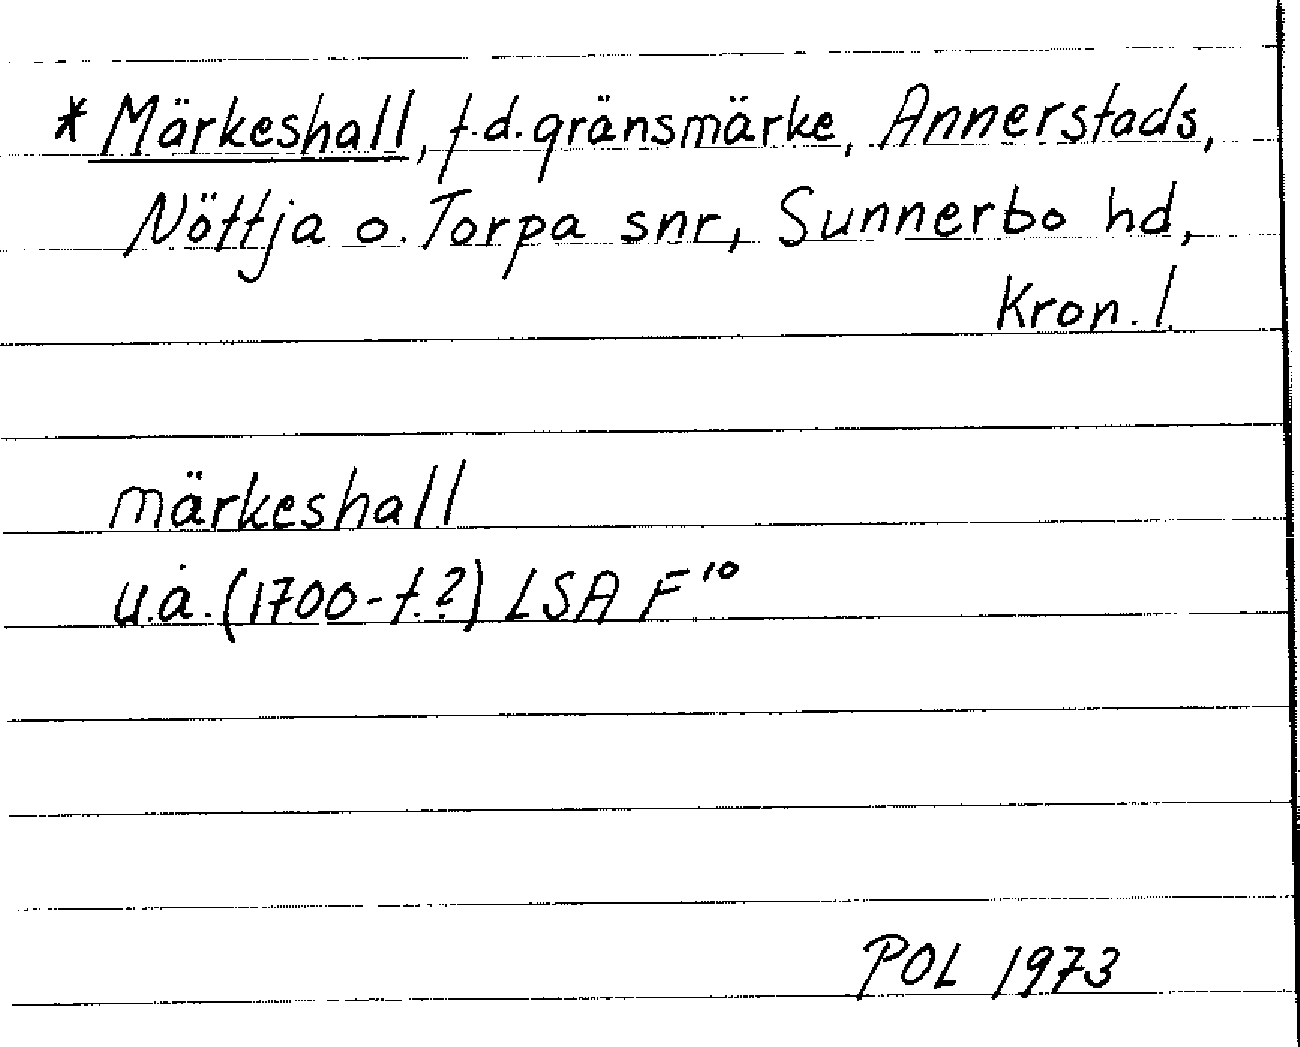 * Märkeshall, f.d. gränsmärke, Annerstads,
Nöttja o. Torpa snr, Sunnerbo hd,
Kron. l.
märkeshall
u.å. (1700-t.?) LSA F¹⁰
POL 1973